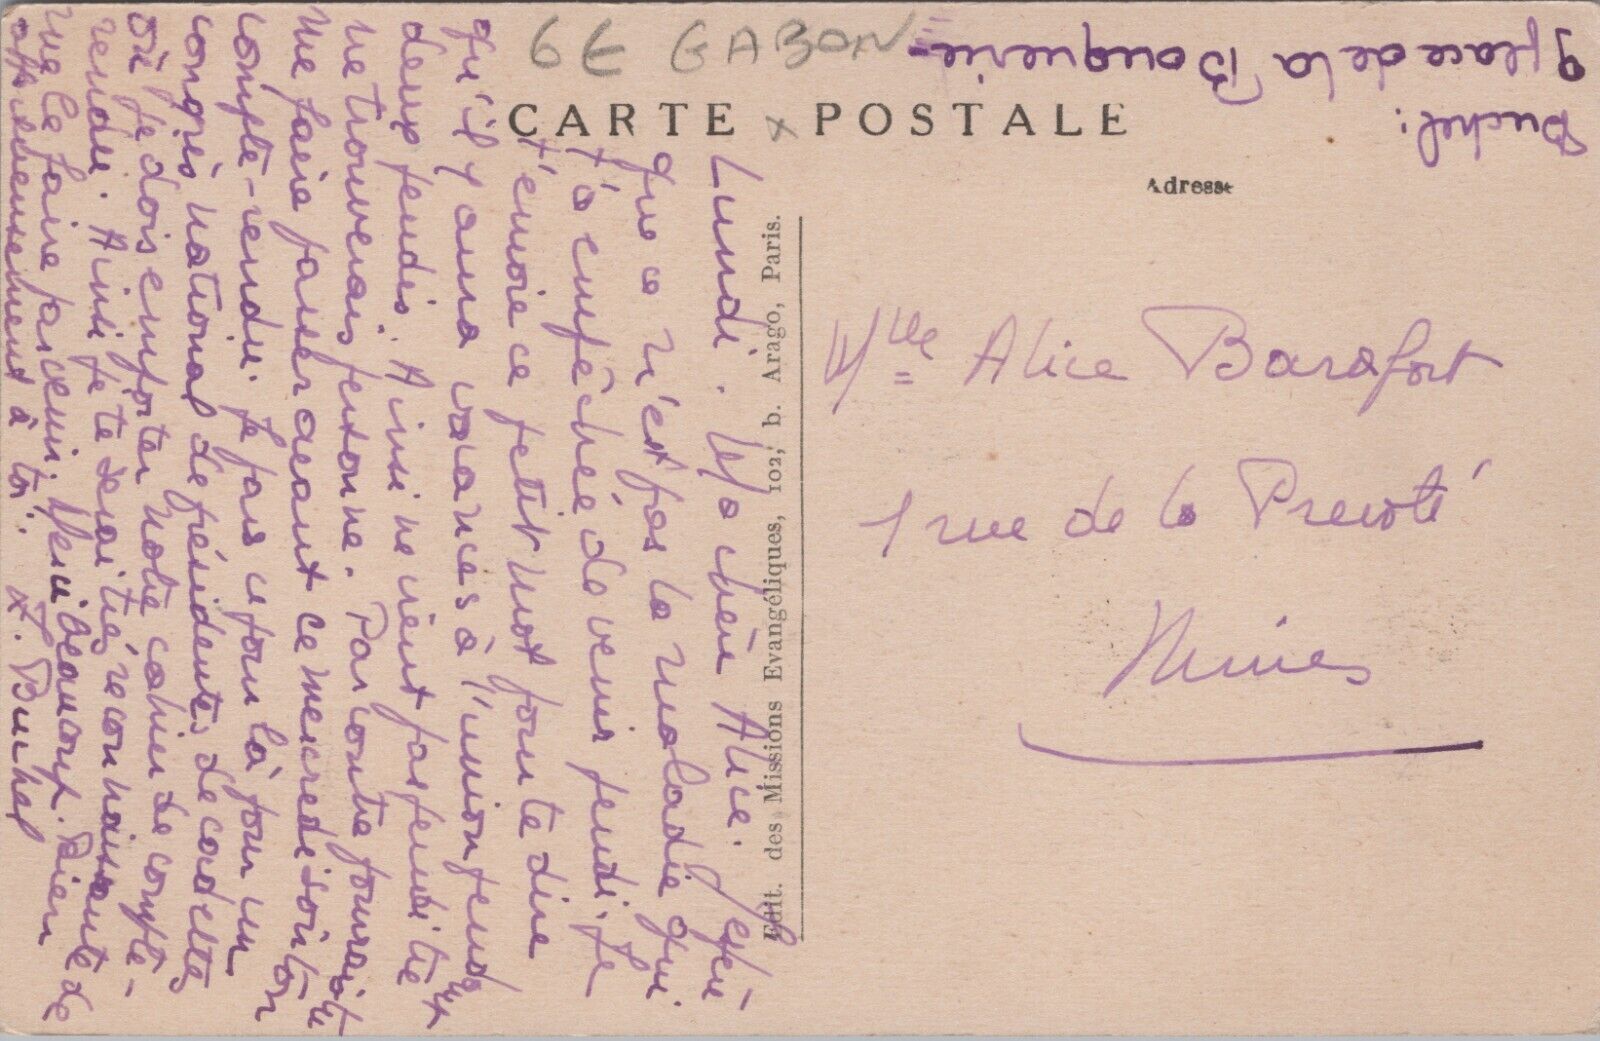 6E GABON
Puchel.
9 place de la Bouquerie
CARTE POSTALE
Adresse
Lundi. Ma chère Alice. J'espère
que ce n'est pas la maladie qui
t'a empêchée de venir jeudi. Je
t'envoie ce petit mot pour te dire
qu'il y aura vacances à l'union jeudi
deux jeudis. Ainsi ne vient pas jeudi tu
ne trouverais personne. Par contre pourrais tu
me faire passer avant ce mercredi soir ton
compte-rendu. Je pars ce jour là pour un
congrès national de présidentes de cadettes
où je dois emporter notre cahier de compte-
rendu. Ainsi je te serai très reconnaissante de
me le faire parvenir. Merci beaucoup. Bien
affectueusement à toi. Puchel
Edit. des Missions Evangéliques, 102, b. Arago, Paris.
Mlle Alice Barafort
1 rue de la Prevoté
Nimes